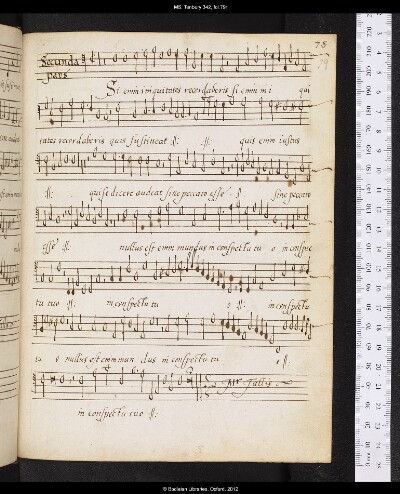 MS. Tenbury 342, fol.78r
78
Secunda
pars
Si enim iniquitates recordaberis si enim ini qui
tates recordaberis quis sustineat :||: :||: quis enim iustus
:||: quise dicere audeat sine peccato esse :||: sine peccato
esse :||: nullus est enim mundus in conspectu tu o in conspec
tu tuo :||: in conspectu tu o :||: in conspectu
tu o nullus est enim mun dus in conspectu tu o :||:
in conspectu tuo :||:
Mr Tallis
© Bodleian Libraries, Oxford, 2012